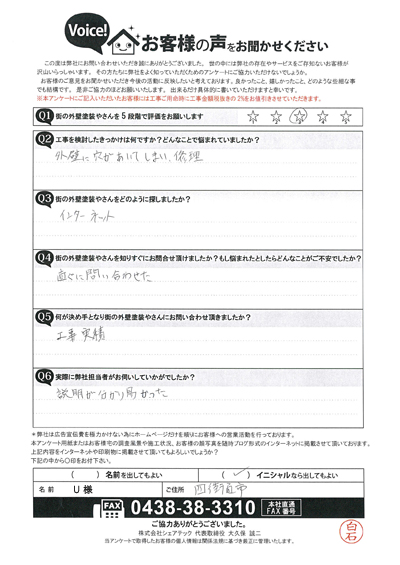 Voice!
お客様の声をお聞かせください
この度は弊社にお問い合わせいただき誠にありがとうございました。世の中には弊社の存在やサービスをご存知ないお客様が
沢山いらっしゃいます。その方たちに弊社をよく知っていただくためのアンケートにご協力いただけないでしょうか。
お客様のご意見をお聞かせいただき今後の活動に反映したいと考えております。良かったこと、嬉しかったこと、どのような些細な事
でも結構です。是非ご協力のほどお願いいたします。出来るだけ具体的に書いていただけますと幸いです。
※本アンケートにご記入いただいたお客様には工事ご用命時に工事金額現金値引きの2%をお値引きさせていただきます。
Q1 街の外壁塗装やさんを5段階で評価をお願いします ☆ ☆ ☆ ☆ ☆
Q2 工事を検討したきっかけは何ですか?どんなことで悩まれていましたか?
外壁に穴があいてしまい、修理
Q3 街の外壁塗装やさんをどのように探しましたか?
インターネット
Q4 街の外壁塗装やさんを知りすぐにお問合せ頂けましたか?もし悩まれたとしたらどんなことがご不安でしたか?
直ぐに問い合わせた
Q5 何が決め手となり街の外壁塗装やさんにお問い合わせ頂きましたか?
工事実績
Q6 実際に弊社担当者がお伺いしていかがでしたか?
説明が分かり易かった
*弊社は広告宣伝費を極力かけない為にホームページだけを頼りにお客様への営業活動を行っております。
本アンケート用紙またはお客様宅の調査風景や施工状況、お客様の顔写真を随時ブログ形式のインターネットに掲載させて頂いております。
上記内容をインターネットや印刷物に掲載させて頂いてもよろしいでしょうか?
下記の中から〇印をお付下さい。
( ) 名前を出してもよい (✓) イニシャルなら出してもよい
名前 U 様 ご住所 四街道市
FAX 0438-38-3310 本社直通 FAX番号
ご協力ありがとうございました。
株式会社シェアテック 代表取締役 大久保 誠二
当アンケートで取得したお客様の個人情報は関係法規に基づき厳正に管理いたします。
白石